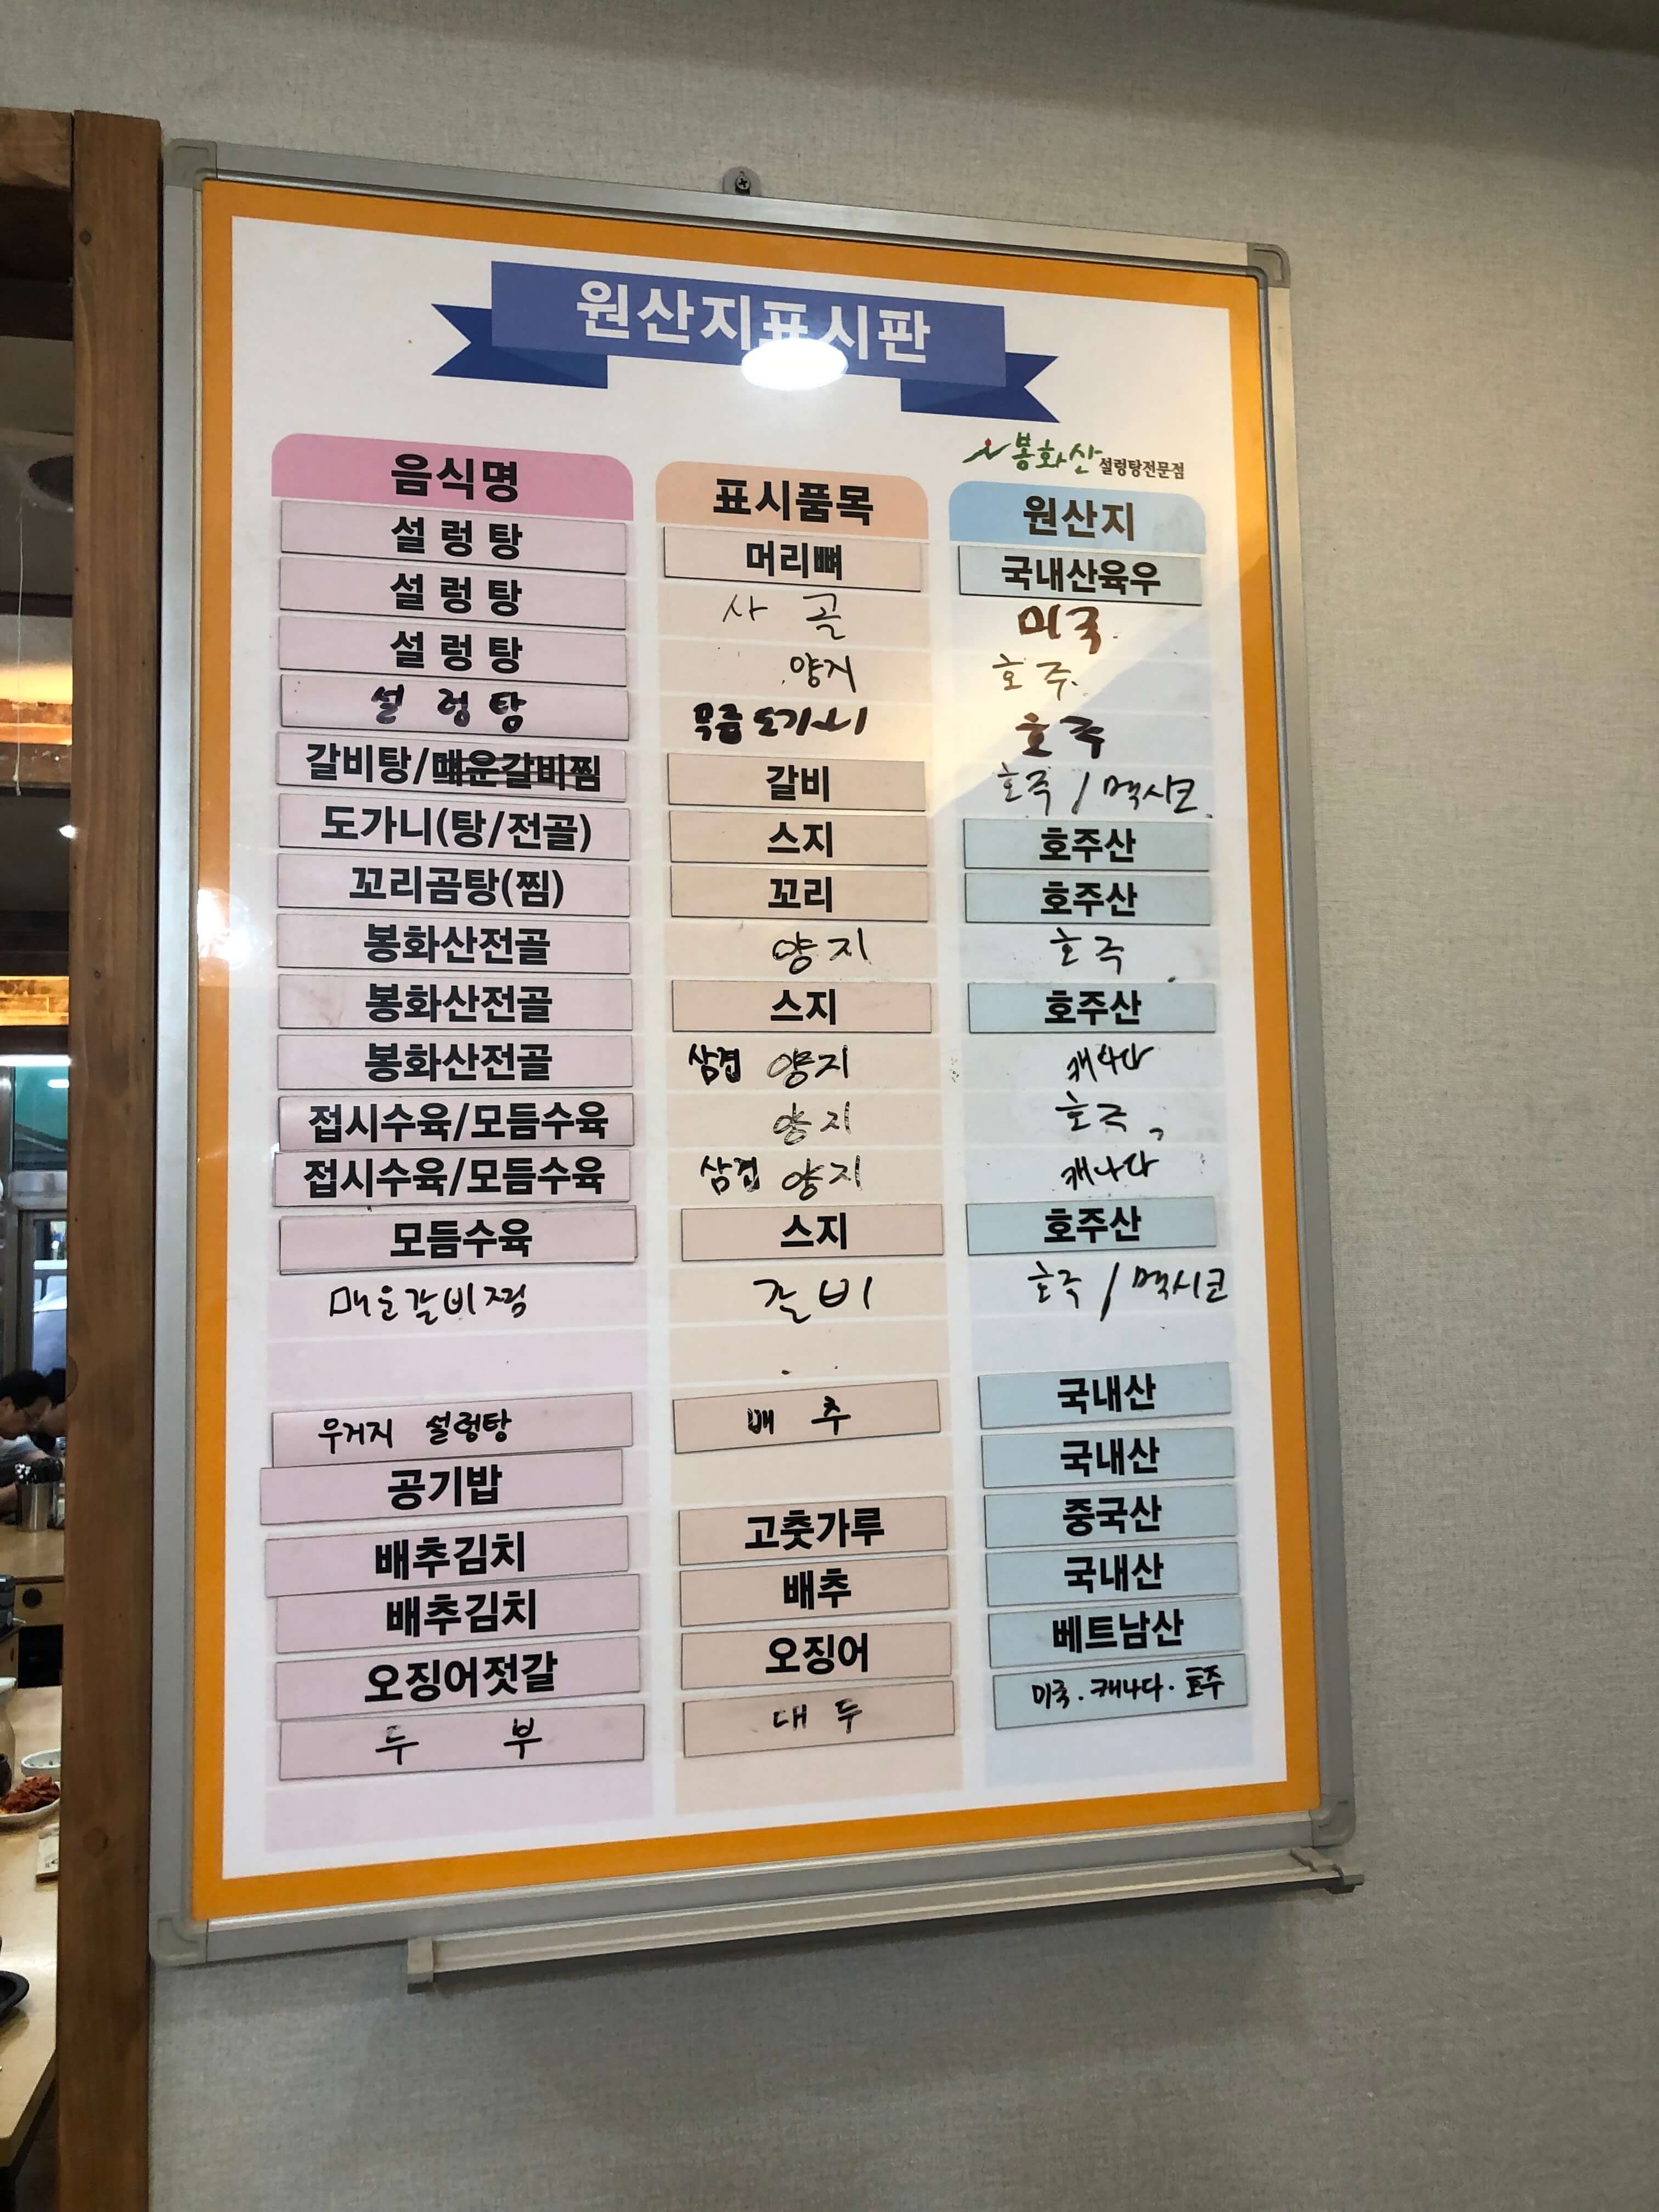 원산지표시판
봉화산 설렁탕전문점
음식명 표시품목 원산지
설렁탕 머리뼈 국내산육우
설렁탕 사골 미국
설렁탕 양지 호주
설렁탕 무릎도가니 호주
갈비탕/매운갈비찜 갈비 호주/멕시코
도가니(탕/전골) 스지 호주산
꼬리곰탕(찜) 꼬리 호주산
봉화산전골 양지 호주
봉화산전골 스지 호주산
봉화산전골 삼겹양지 캐나다
접시수육/모듬수육 양지 호주
접시수육/모듬수육 삼겹양지 캐나다
모듬수육 스지 호주산
매운갈비찜 갈비 호주/멕시코
우거지 설렁탕 배추 국내산
공기밥 국내산
배추김치 고춧가루 중국산
배추김치 배추 국내산
오징어젓갈 오징어 베트남산
두부 대두 미국·캐나다·호주